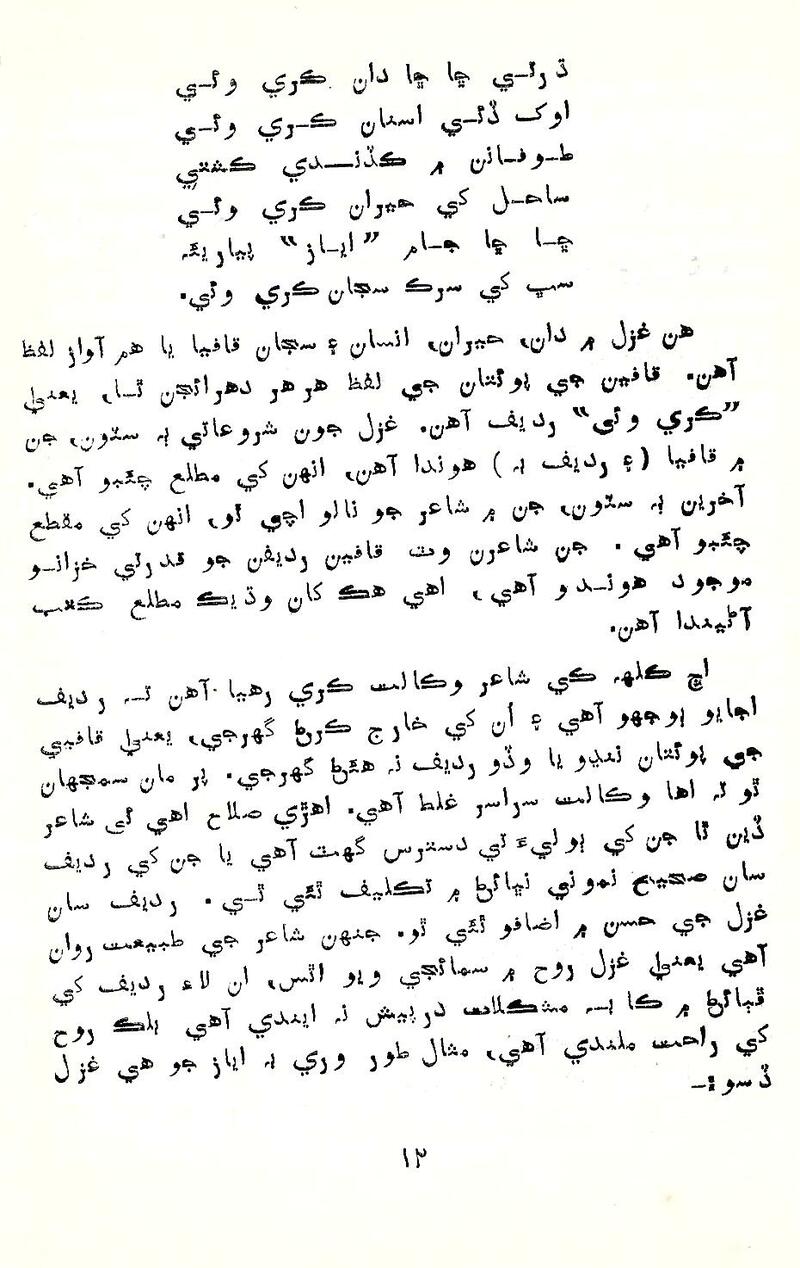 ڌرتي ڇا ڇا دان ڪري وئي
اوک ڏئي انسان ڪري وئي
طوفانن ۾ ڪڏندي ڪشتي
ساحل کي حيران ڪري وئي
ڇا ڇا جام ”اياز“ پياريئه
سڀ کي سرڪ سڄان ڪري وئي.
هن غزل ۾ دان، حيران، انسان ۽ سڄان قافيا يا هم آواز لفظ
آهن. قافين جي پوئتان جي لفظ هر هر دهرائجن ٿا، يعني
”ڪري وئي“ رديف آهن. غزل جون شروعاتي ٻه سٽون، جن
۾ قافيا (۽ رديف به) هوندا آهن، انهن کي مطلع چئبو آهي.
آخرين ٻه سٽون، جن ۾ شاعر جو نالو اچي ٿو، انهن کي مقطع
چئبو آهي. جن شاعرن وٽ قافين رديفن جو قدرتي خزانو
موجود هوندو آهي، اهي هڪ کان وڌيڪ مطلع ڪتب
آڻيندا آهن.
اڄ ڪلهه ڪي شاعر وڪالت ڪري رهيا آهن ته رديف
اجايو ٻوجهو آهي ۽ اُن کي خارج ڪرڻ گهرجي، يعني قافيي
جي پوئتان ننڍو يا وڏو رديف نه هئڻ گهرجي. پر مان سمجهان
ٿو ته اها وڪالت سراسر غلط آهي. اهڙي صلاح اهي ئي شاعر
ڏين ٿا جن کي ٻوليءَ تي دسترس گهٽ آهي يا جن کي رديف
سان صحيح نموني نڀائڻ ۾ تڪليف ٿئي ٿي. رديف سان
غزل جي حسن ۾ اضافو ٿئي ٿو. جنهن شاعر جي طبيعت روان
آهي يعني غزل روح ۾ سمائجي ويو اٿس، ان لاءِ رديف کي
نڀائڻ ۾ ڪا به مشڪلات درپيش نه ايندي آهي بلڪ روح
کي راحت ملندي آهي، مثال طور وري به اياز جو هي غزل
ڏسو:-
١٢